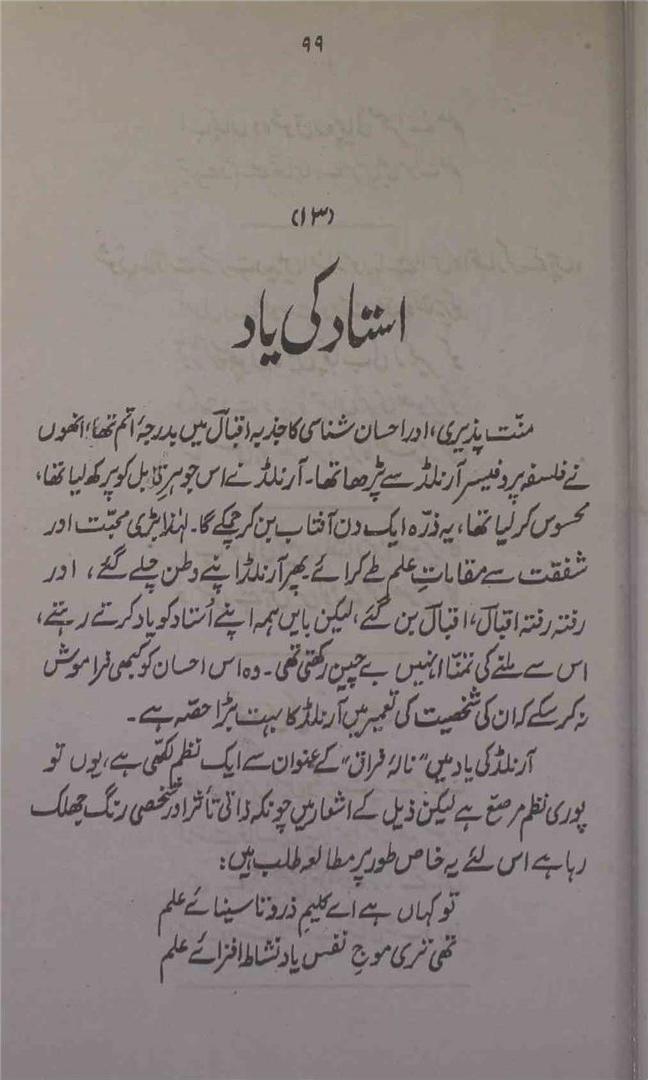 ۹۹
(۱۳)
استاد کی یاد
منّت پذیری، اور احسان شناسی کا جذبہ اقبالؔ میں بدرجۂ اتم تھا؛ انھوں
نے فلسفہ پروفیسر آرنلڈ سے پڑھا تھا۔ آرنلڈ نے اس جوہرِ قابل کو پرکھ لیا تھا،
محسوس کر لیا تھا، یہ ذرّہ ایک دن آفتاب بن کر چمکے گا۔ لہٰذا بڑی محبّت اور
شفقت سے مقاماتِ علم طے کرائے پھر آرنلڈ اپنے وطن چلے گئے، اور
رفتہ رفتہ اقبالؔ، اقبالؔ بن گئے، لیکن بایں ہمہ اپنے اُستاد کو یاد کرتے رہتے،
اس سے ملنے کی تمنّا انہیں بے چین رکھتی تھی۔ وہ اس احسان کو کبھی فراموش
نہ کر سکے کہ ان کی شخصیت کی تعمیر میں آرنلڈ کا بہت بڑا حصّہ ہے۔
آرنلڈ کی یاد میں "نالۂ فراق" کے عنوان سے ایک نظم لکھی ہے، یوں تو
پوری نظم مرصّع ہے لیکن ذیل کے اشعار میں چونکہ ذاتی تأثر اور شخصی رنگ جھلک
رہا ہے اس لئے یہ خاص طور پر مطالعہ طلب ہیں:
تو کہاں ہے اے کلیمِ ذروۂ سینائے علم
تھی تری موجِ نفس یاد نشاط افزائے علم